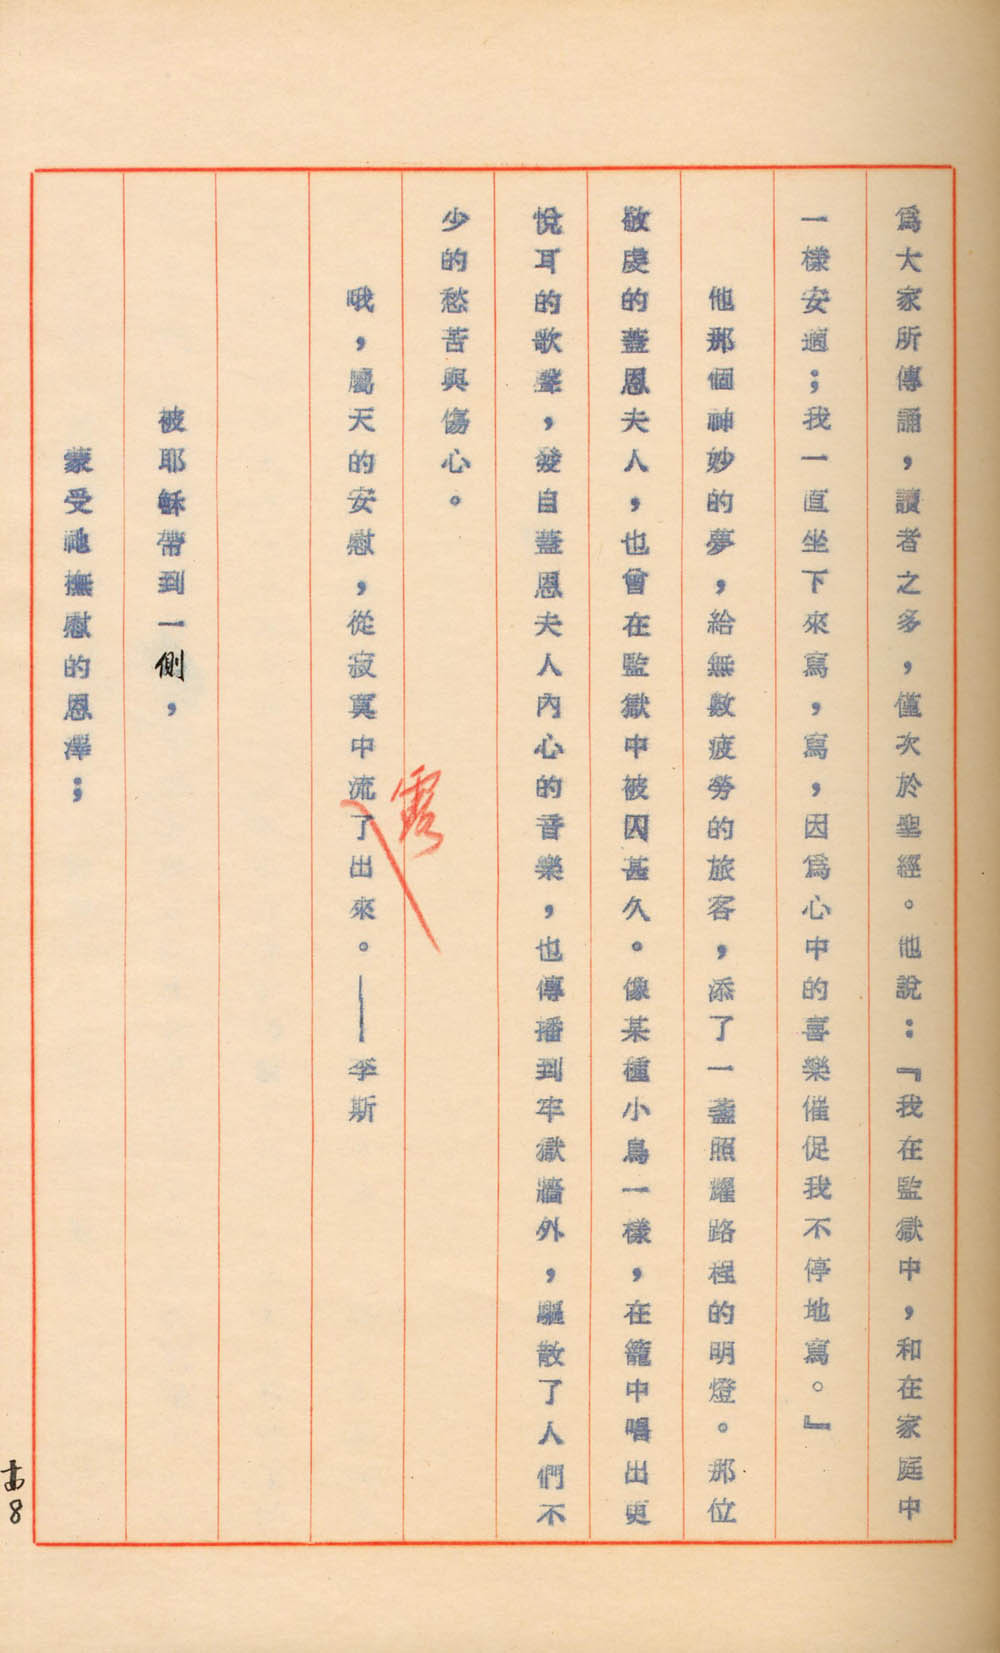 爲大家所傳誦，讀者之多，僅次於聖經。他說：『我在監獄中，和在家庭中
一樣安適；我一直坐下來寫，寫，因爲心中的喜樂催促我不停地寫。』
他那個神妙的夢，給無數疲勞的旅客，添了一盞照耀路程的明燈。那位
敬虔的蓋恩夫人，也曾在監獄中被囚甚久。像某種小鳥一樣，在籠中唱出更
悅耳的歌聲，發自蓋恩夫人內心的音樂，也傳播到牢獄牆外，驅散了人們不
少的愁苦與傷心。
露
哦，屬天的安慰，從寂寞中流了出來。——李斯
被耶穌帶到一側，
蒙受祂撫慰的恩澤；
8